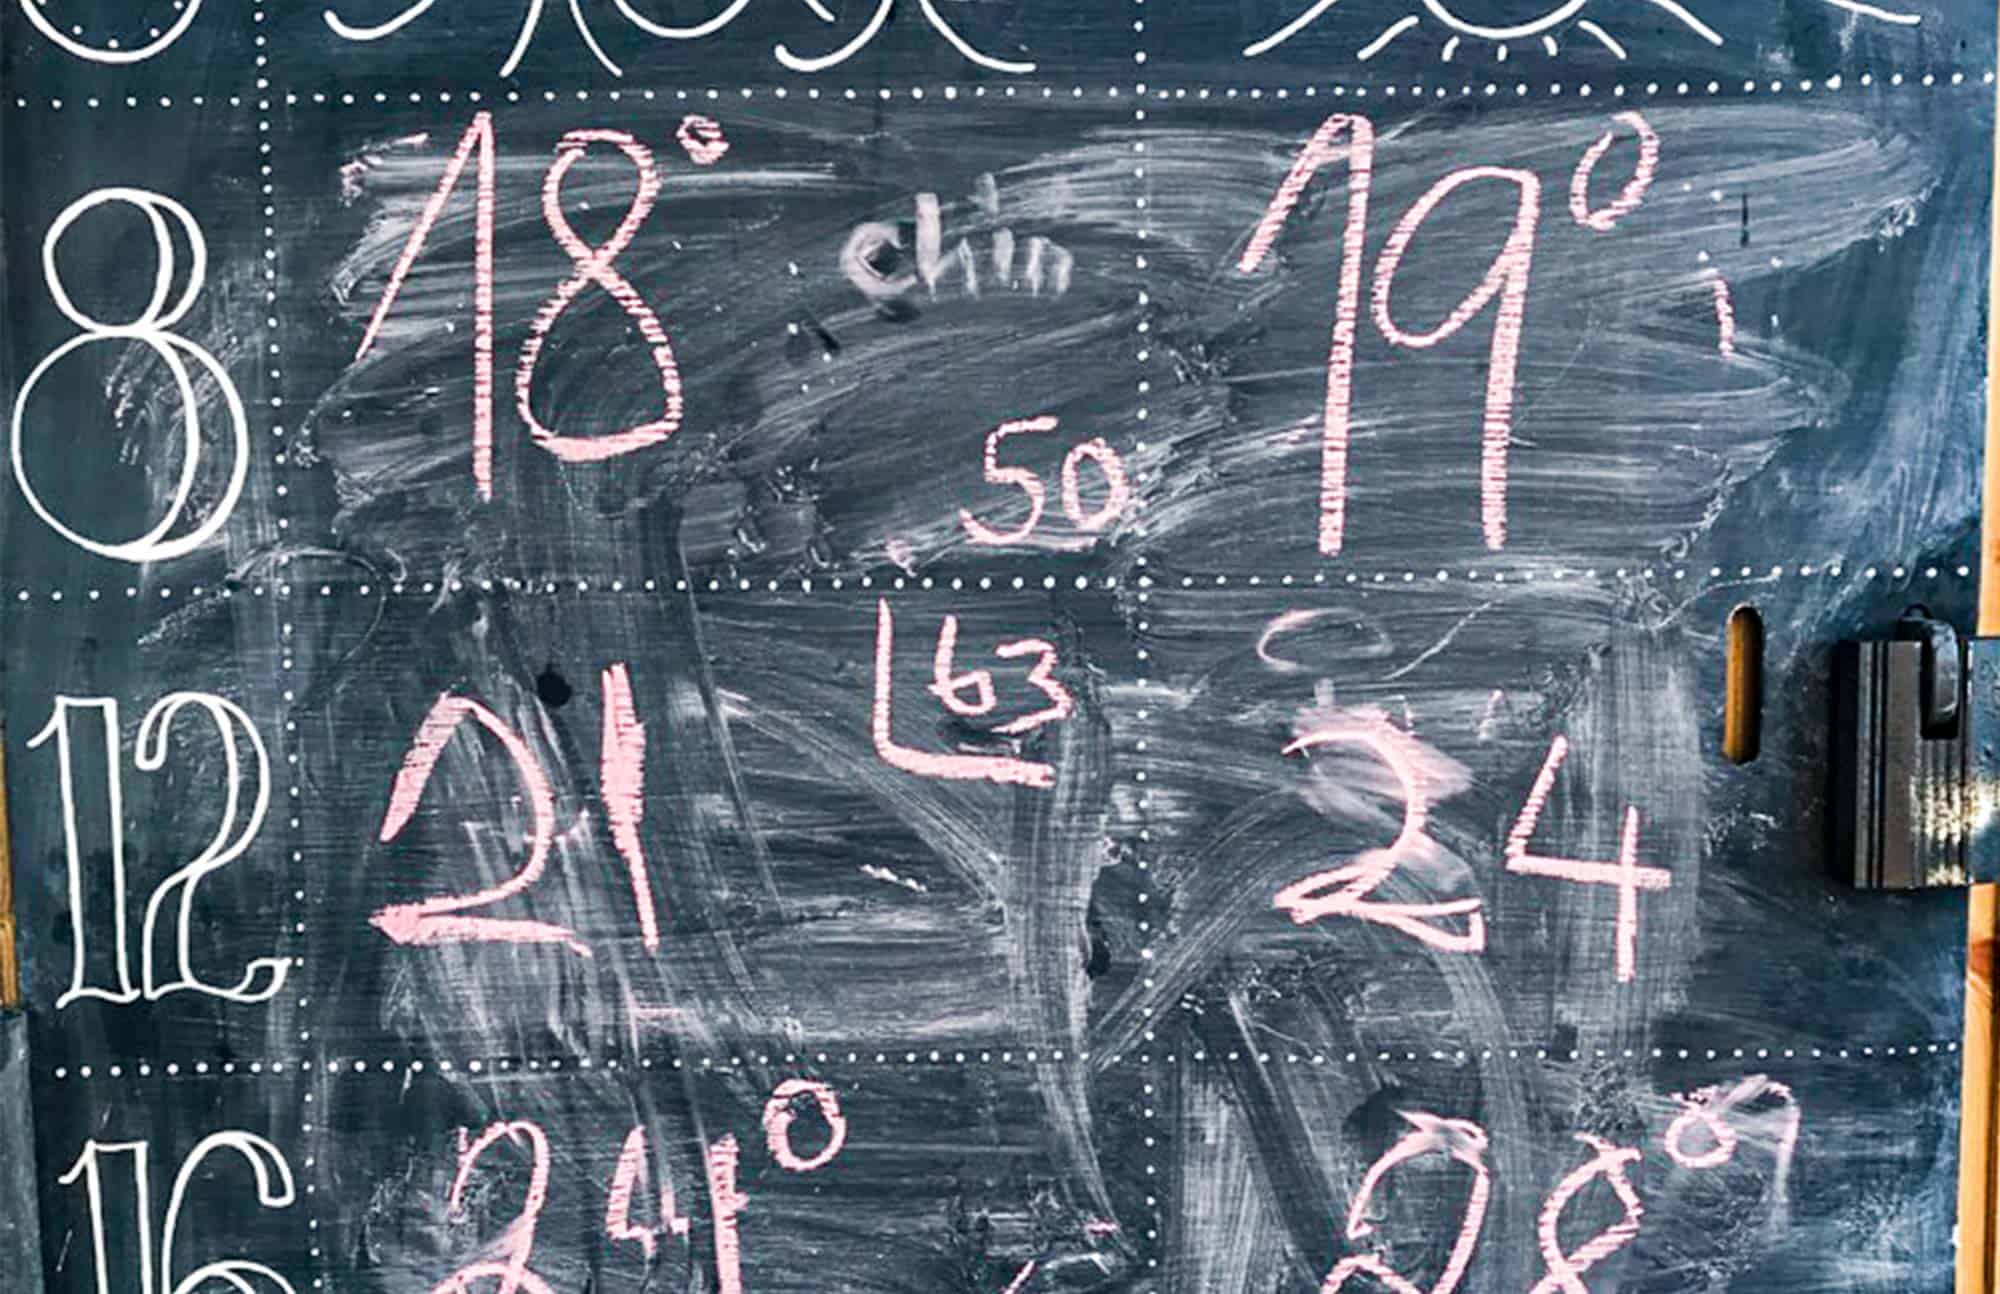 8 18° chin 50 19°
12 21 63 24
16 24° 28°